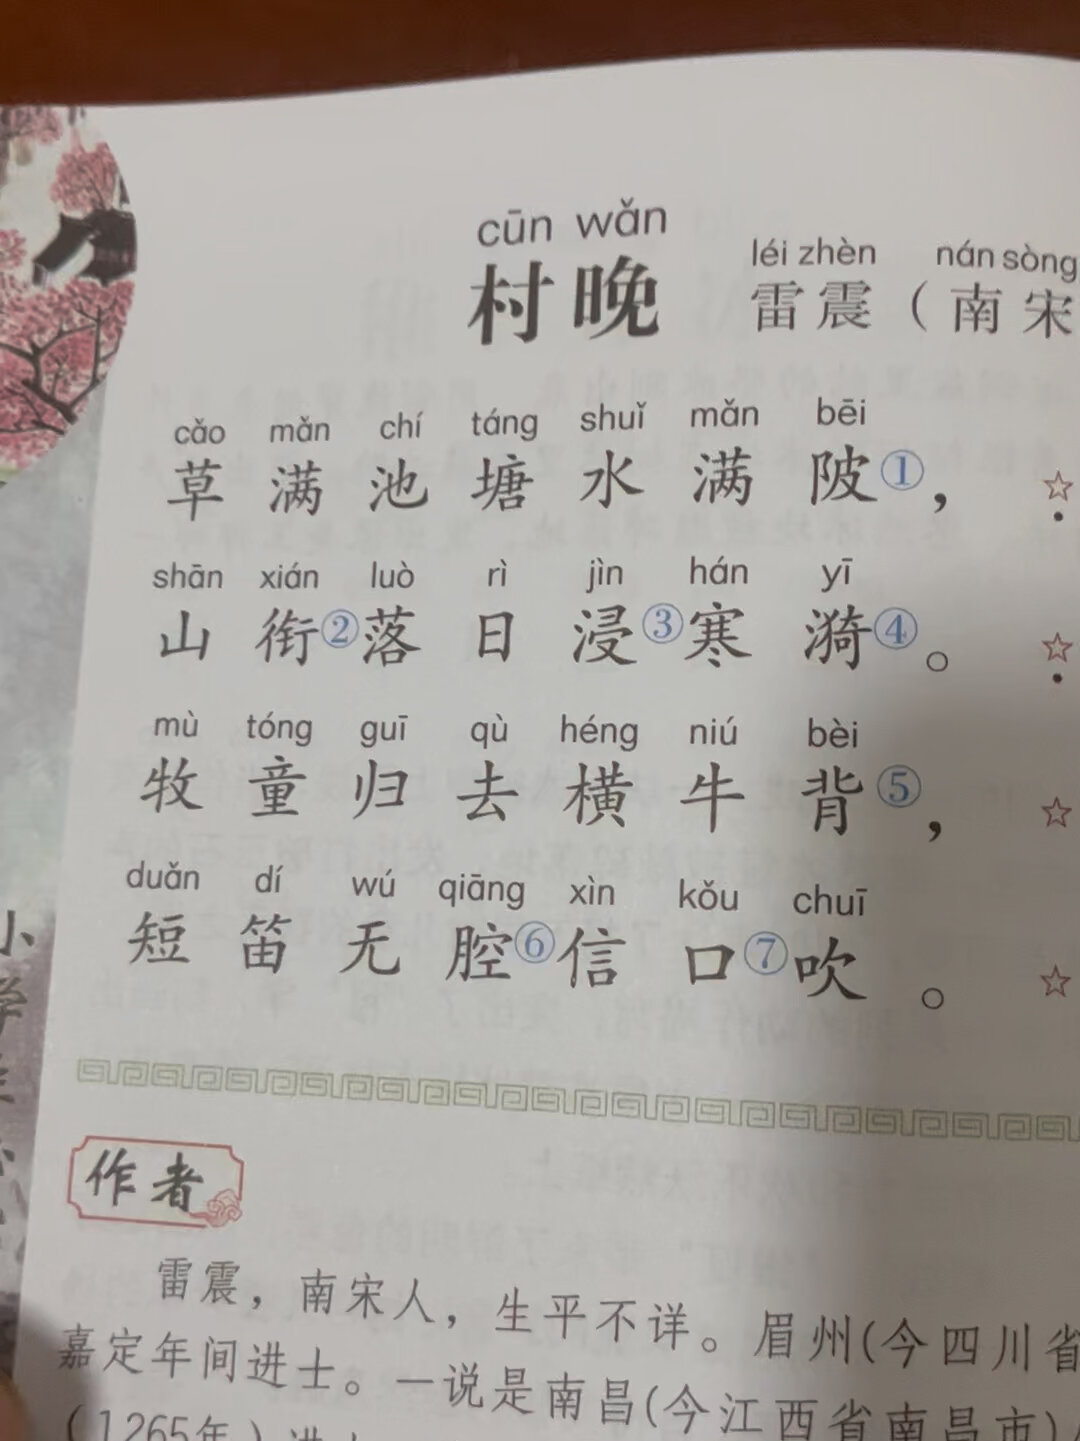 cūn wǎn
村晚
léi zhèn nán sòng
雷震（南宋
cǎo mǎn chí táng shuǐ mǎn bēi
草满池塘水满陂①，☆
shān xián luò rì jìn hán yī
山衔②落日浸③寒漪④。☆
mù tóng guī qù héng niú bèi
牧童归去横牛背⑤，☆
duǎn dí wú qiāng xìn kǒu chuī
短笛无腔⑥信口⑦吹。☆
作者
雷震，南宋人，生平不详。眉州(今四川省
嘉定年间进士。一说是南昌(今江西省南昌市)
(1265年)进士
小学